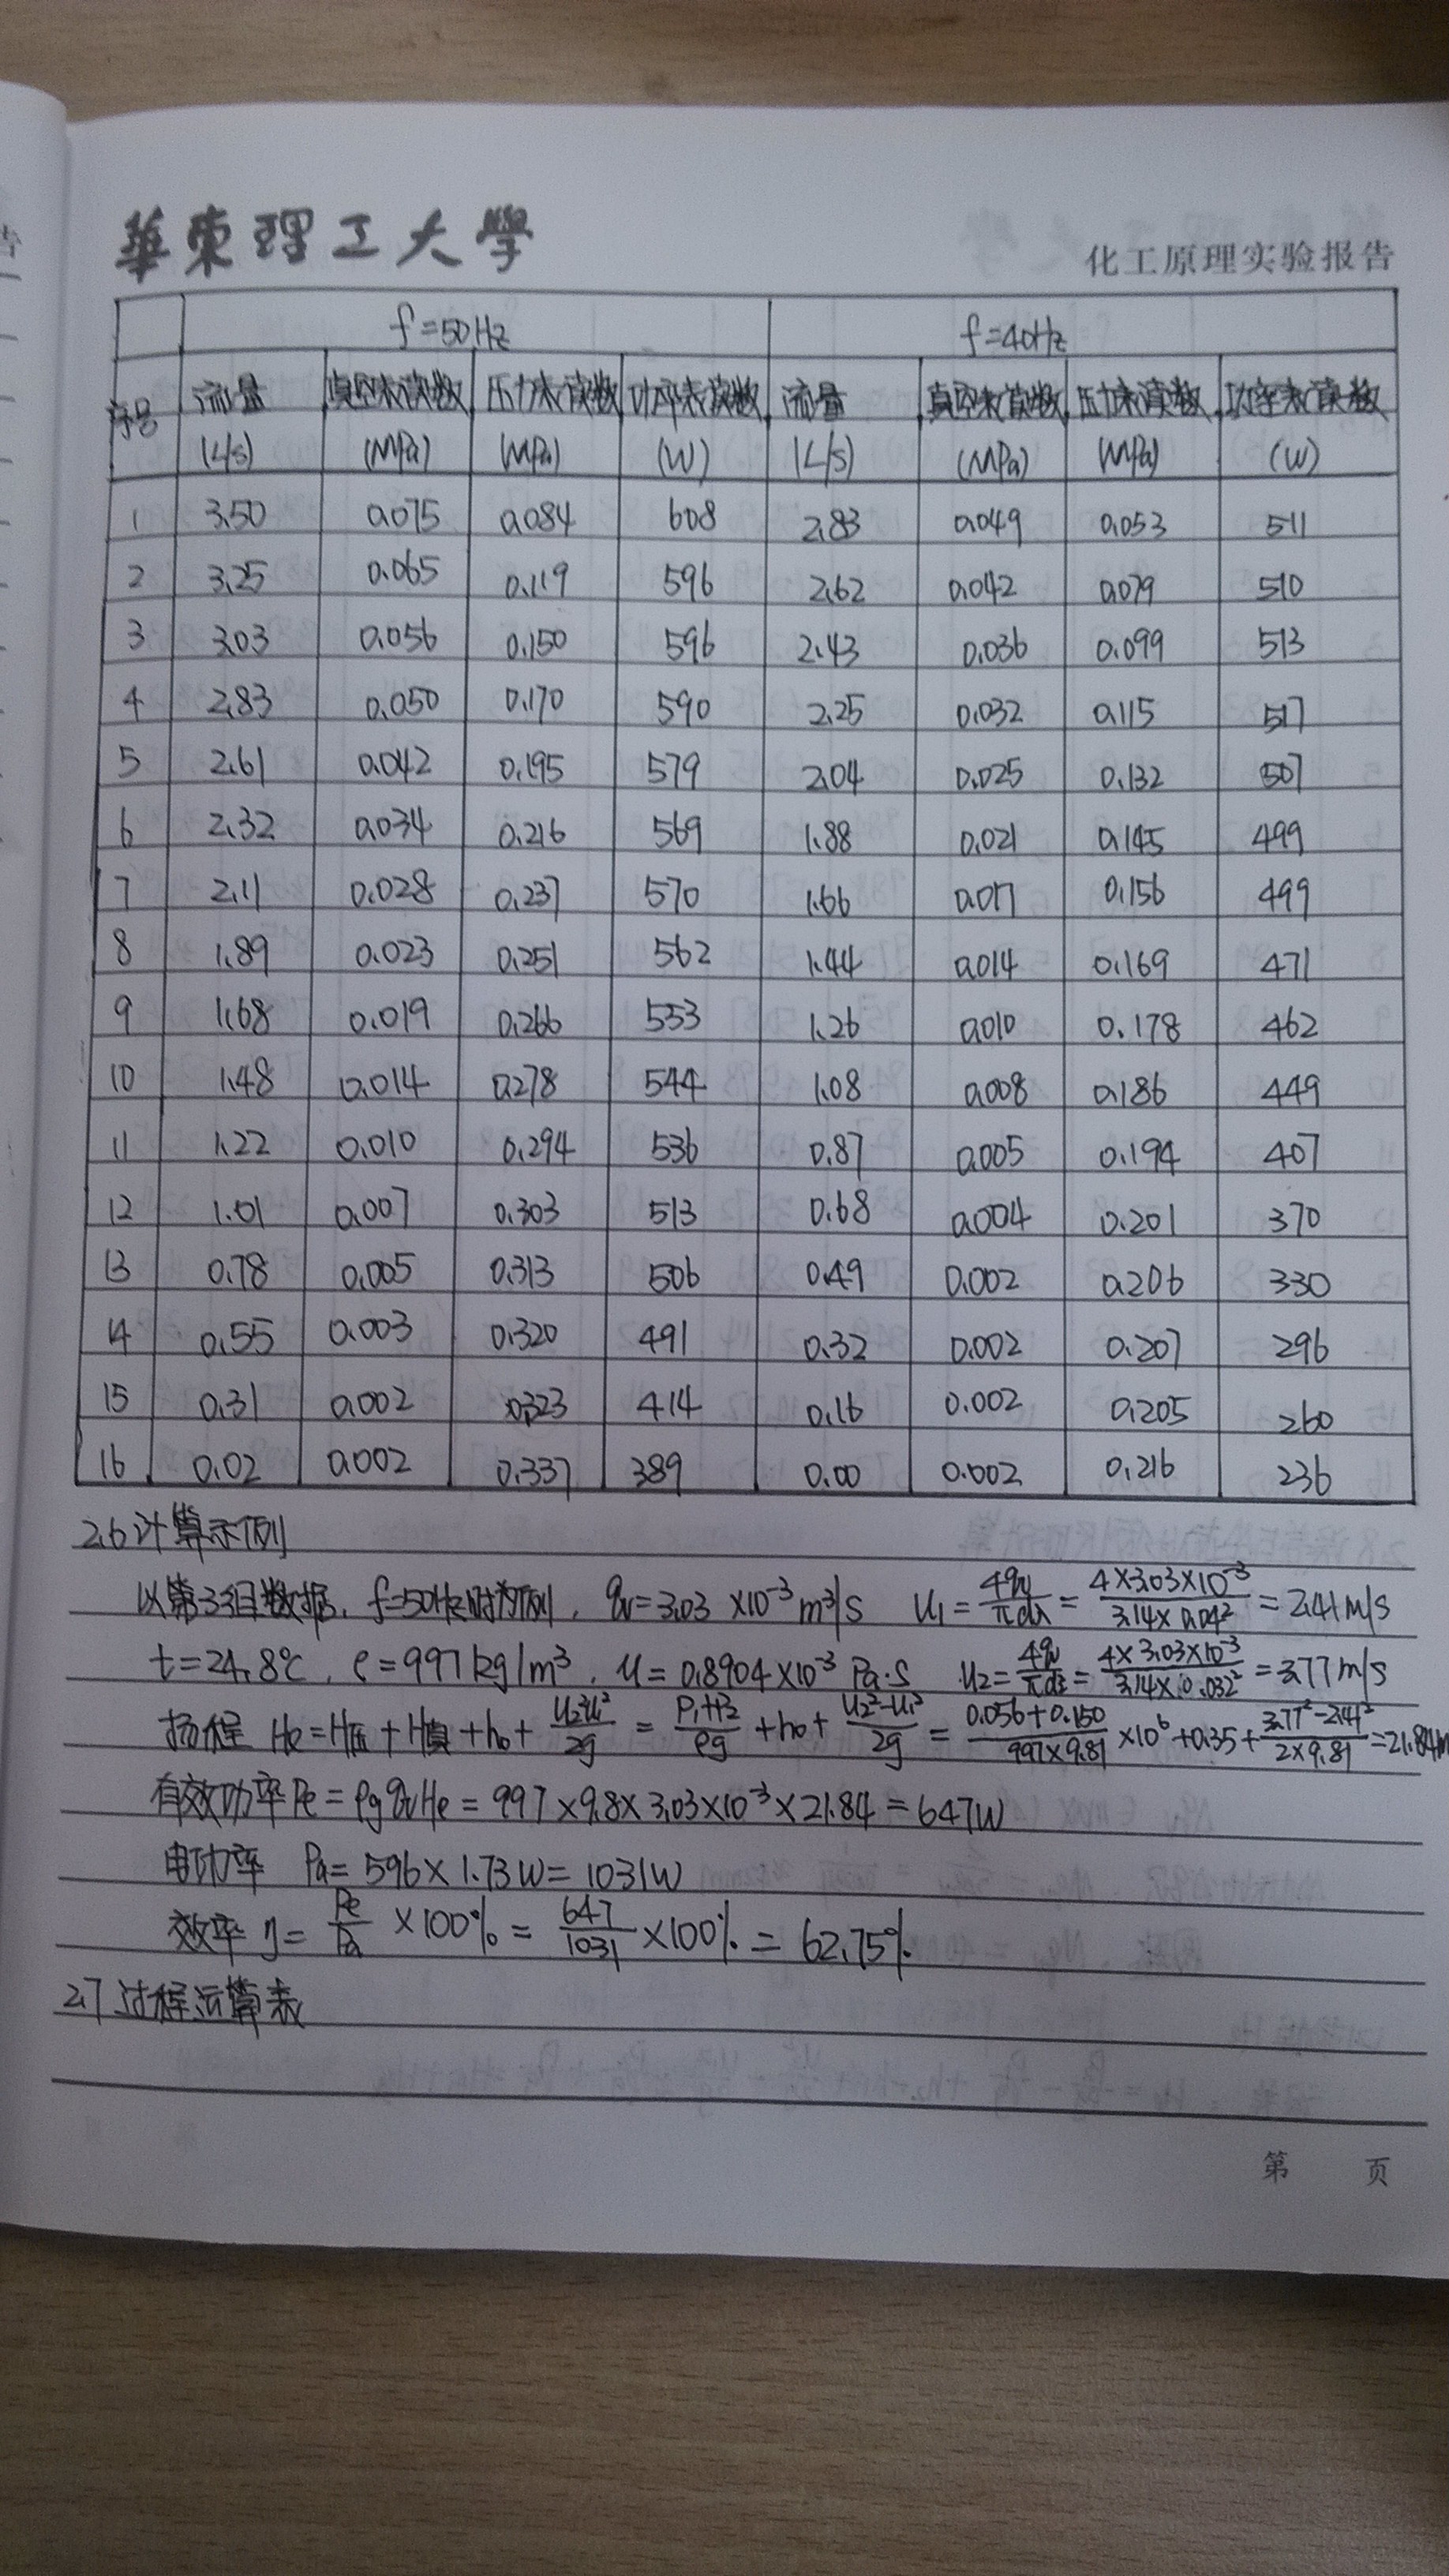 華東理工大學
化工原理实验报告
f=50Hz f=40Hz
序号 流量 真空表读数 压力表读数 功率表读数 流量 真空表读数 压力表读数 功率表读数
(L/s) (MPa) (MPa) (W) (L/s) (MPa) (MPa) (W)
1 3.50 0.075 0.084 608 2.83 0.049 0.053 511
2 3.25 0.065 0.119 596 2.62 0.042 0.079 510
3 3.03 0.056 0.150 596 2.43 0.036 0.099 513
4 2.83 0.050 0.170 590 2.25 0.032 0.115 517
5 2.61 0.042 0.195 579 2.04 0.025 0.132 507
6 2.32 0.034 0.216 569 1.88 0.021 0.145 499
7 2.11 0.028 0.237 570 1.66 0.017 0.156 499
8 1.89 0.023 0.251 562 1.44 0.014 0.169 471
9 1.68 0.019 0.266 553 1.26 0.010 0.178 462
10 1.48 0.014 0.278 544 1.08 0.008 0.186 449
11 1.22 0.010 0.294 536 0.87 0.005 0.194 407
12 1.01 0.007 0.303 513 0.68 0.004 0.201 370
13 0.78 0.005 0.313 506 0.49 0.002 0.206 330
14 0.55 0.003 0.320 491 0.32 0.002 0.207 296
15 0.31 0.002 0.323 414 0.16 0.002 0.205 260
16 0.02 0.002 0.337 389 0.00 0.002 0.216 236
2.6 计算示例
以第3组数据, f=50Hz时为例, qv=3.03×10⁻³m³/s u₁=4qv/πd₁²=4×3.03×10⁻³/3.14×0.04²=2.41m/s
t=24.8℃, ρ=997kg/m³, μ=0.8904×10⁻³ Pa·s u₂=4qv/πd₂²=4×3.03×10⁻³/3.14×0.032²=3.77m/s
扬程 He=H压+H真+h₀+(u₂²-u₁²)/2g=(P₁+P₂)/ρg+h₀+(u₂²-u₁²)/2g=(0.056+0.150)/(997×9.81)×10⁶+0.35+(3.77²-2.41²)/(2×9.81)=21.84m
有效功率Pe=ρgqvHe=997×9.8×3.03×10⁻³×21.84=647W
电功率 Pa=596×1.73W=1031W
效率η=Pe/Pa×100%=647/1031×100%=62.75%
2.7 过程运算表
第 页